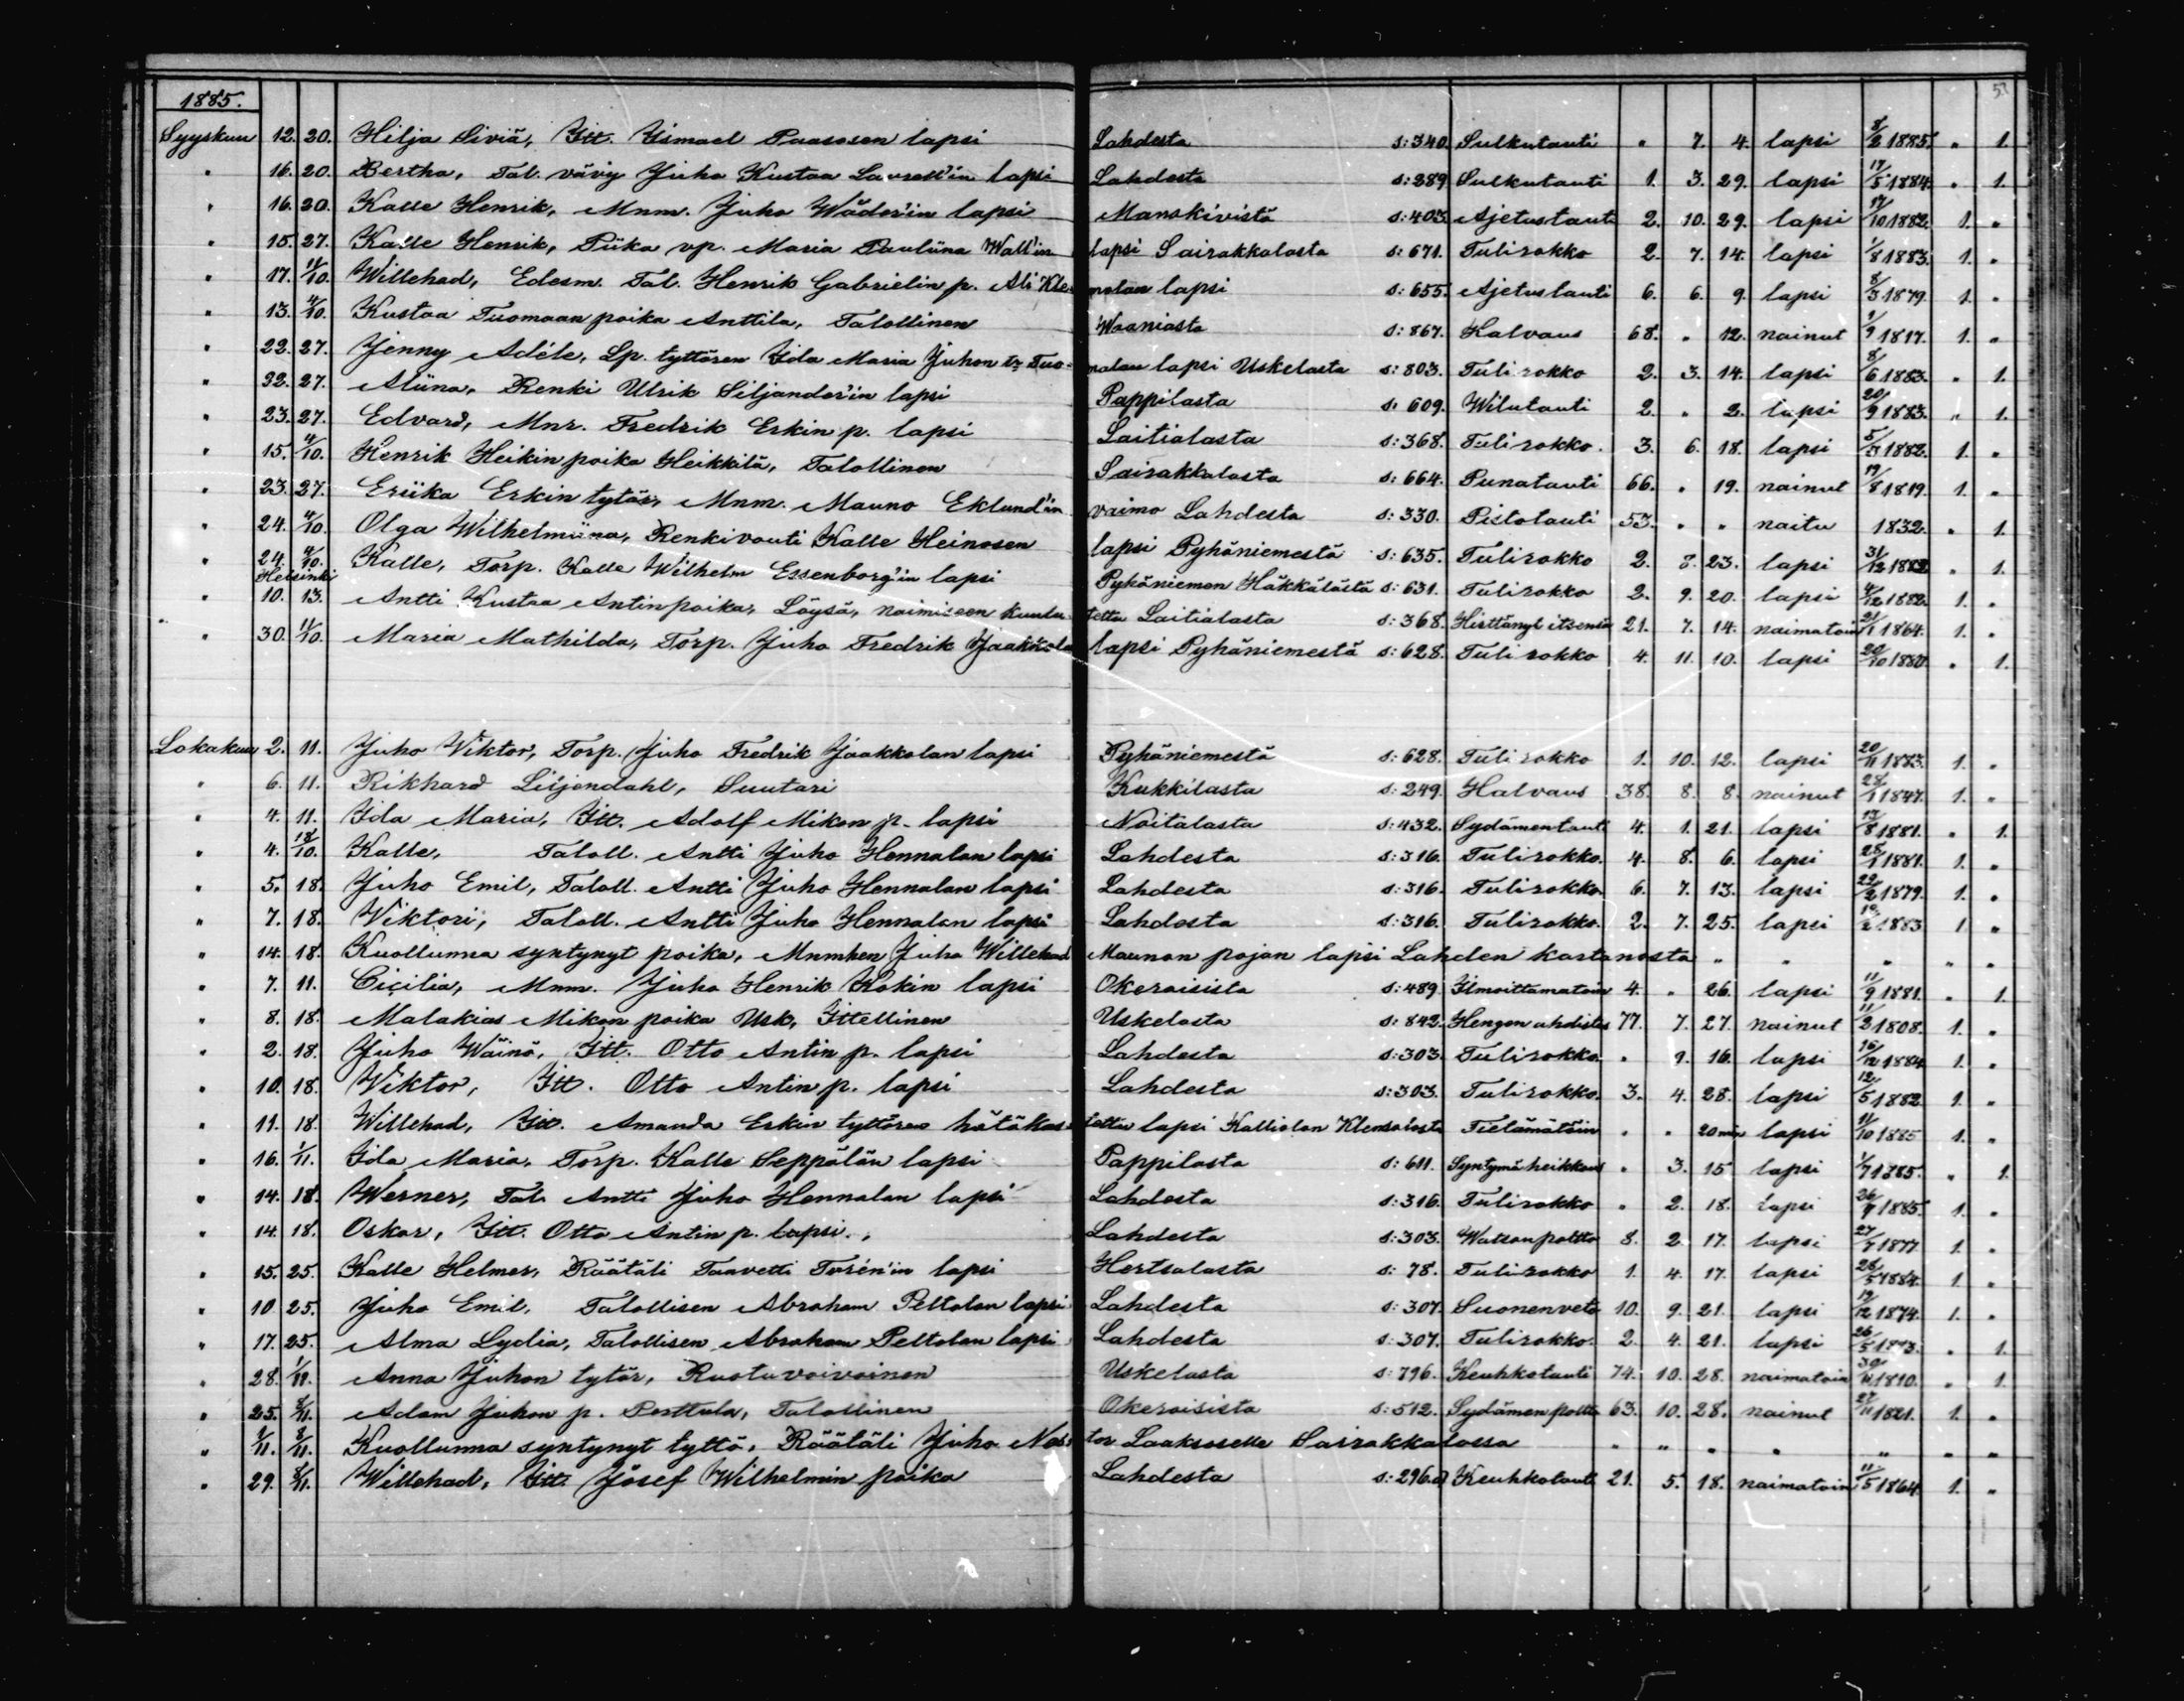 53
1885.
Syyskuu 12. 20. Hilja Siviä, Itt. Ismael Paasosen lapsi Lahdesta s: 340. Sulkutauti " 7. 4. lapsi 8/2 1885. " 1.
" 16. 20. Bertha, Tal. vävy Juho Kustaa Laurell'in lapsi Lahdesta s: 289 Sulkutauti 1. 3. 29. lapsi 17/5 1884. " 1.
" 16. 20. Kalle Henrik, Mnm. Juho Wäder'in lapsi Manskivistä s: 403. Ajetustauti 2. 10. 29. lapsi 17/10 1882. 1. "
" 15. 27. Kalle Henrik, Piika vp. Maria Pauliina Wall'in lapsi Sairakkalasta s: 671. Tulirokko 2. 7. 14. lapsi 1/8 1883. 1. "
" 17. 11/10. Willehad, Edesm. Tal. Henrik Gabrielin p. Ali Kle- melan lapsi s: 655. Ajetustauti 6. 6. 9. lapsi 8/3 1879. 1. "
" 13. 4/10. Kustaa Tuomaan poika Anttila, Talollinen Waaniasta s: 867. Halvaus 68. " 12. nainut 1/9 1817. 1. "
" 22. 27. Jenny Adéle, Lp. tyttären Ida Maria Juhon tr Tuo- malan lapsi Uskelasta s: 803. Tulirokko 2. 3. 14. lapsi 8/6 1883. " 1.
" 22. 27. Aliina, Renki Ulrik Siljander'in lapsi Pappilasta s: 609. Wilutauti 2. " 2. lapsi 20/9 1883. " 1.
" 23. 27. Edvard, Mnr. Fredrik Erkin p. lapsi Laitialasta s: 368. Tulirokko. 3. 6. 18. lapsi 5/3 1882. 1. "
" 15. 4/10. Henrik Heikin poika Heikkilä, Talollinen Sairakkalasta s: 664. Punatauti 66. " 19. nainut 19/8 1819. 1. "
" 23. 27. Eriika Erkin tytär, Mnm. Mauno Eklund'in vaimo Lahdesta s: 330. Pistotauti 53. " " naitu 1832. " 1.
" 24. 4/10. Olga Wilhelmiina, Renkivouti Kalle Heinosen lapsi Pyhäniemestä s: 635. Tulirokko 2. 8. 23. lapsi 31/12 1882 " 1.
" 24. 4/10. Kalle, Torp. Kalle Wilhelm Essenborg'in lapsi Pyhäniemen Häkkälästä s: 631. Tulirokko 2. 9. 20. lapsi 4/12 1882. 1. "
Helsinki
" 10. 13. Antti Kustaa Antinpoika, Löysä, naimiseen kuulu- tettu Laitialasta s: 368. Hirttänyt itsensä 21. 7. 14. naimatoin 21/1 1864. 1. "
" 30. 11/10. Maria Mathilda, Torp. Juho Fredrik Jaakkolan lapsi Pyhäniemestä s: 628. Tulirokko 4. 11. 10. lapsi 20/10 1880. " 1.
Lokakuu 2. 11. Juho Viktor, Torp. Juho Fredrik Jaakkolan lapsi Pyhäniemestä s: 628. Tulirokko 1. 10. 12. lapsi 20/11 1883. 1. "
" 6. 11. Rikhard Liljendahl, Suutari Kukkilasta s: 249. Halvaus 38. 8. 8. nainut 28/1 1847. 1. "
" 4. 11. Ida Maria, Itt. Adolf Mikon p. lapsi Noitalasta s: 432. Sydämentauti 4. 1. 21. lapsi 13/8 1881. " 1.
" 4. 18/10. Kalle, Taloll. Antti Juho Hennalan lapsi Lahdesta s: 316. Tulirokko. 4. 8. 6. lapsi 28/1 1881. 1. "
" 5. 18. Juho Emil, Taloll. Antti Juho Hennalan lapsi Lahdesta s: 316. Tulirokko. 6. 7. 13. lapsi 22/2 1879. 1. "
" 7. 18. Viktori, Taloll. Antti Juho Hennalan lapsi Lahdesta s: 316. Tulirokko. 2. 7. 25. lapsi 1883 1 "
" 14. 18. Kuollunna syntynyt poika, Mnmhen Juho Willehad Maunon pojan lapsi Lahden kartanosta " " " " "
" 7. 11. Cicilia, Mnm. Juho Henrik Kokin lapsi Okeroisista s: 489. Ilmoittamatoin 4. " 26. lapsi 11/9 1881. " 1.
" 8. 18. Malakias Mikon poika Usk, Ittellinen Uskelasta s: 842. Hengen ahdistus 77. 7. 27. nainut 11/2 1808. 1. "
" 2. 18. Juho Wäinö, Itt. Otto Antin p. lapsi Lahdesta s: 303. Tulirokko. " 9. 16. lapsi 16/12 1884. 1. "
" 10. 18. Viktor, Itt. Otto Antin p. lapsi Lahdesta s: 303. Tulirokko. 3. 4. 28. lapsi 12/5 1882. 1. "
" 11. 18. Willehad, Itt. Amanda Erkin tyttären hätäkas- tettu lapsi Kalliolan Klemsalasta Tietämätöin " " 20 min lapsi 11/10 1885 1. "
" 16. 1/11. Ida Maria, Torp. Kalle Seppälän lapsi Pappilasta s: 611. Syntymä heikkous " 3. 15 lapsi 1/7 1885. " 1.
" 14. 18. Werner, Tal. Antti Juho Hennalan lapsi Lahdesta s: 316. Tulirokko " 2. 18. lapsi 26/7 1885. 1. "
" 14. 18. Oskar, Itt. Otto Antin p. lapsi Lahdesta s: 303. Watsanpoltto 8. 2. 17. lapsi 27/7 1877. 1. "
" 15. 25. Kalle Helmer, Räätäli Taavetti Turén'in lapsi Hertsalasta s: 78. Tulirokko 1. 4. 17. lapsi 28/5 1884. 1. "
" 10 25. Juho Emil, Talollisen Abraham Peltolan lapsi Lahdesta s: 307. Suonenveto 10. 9. 21. lapsi 19/12 1874. 1. "
" 17. 25. Alma Lydia, Talollisen Abraham Peltolan lapsi Lahdesta s: 307. Tulirokko. 2. 4. 21. lapsi 26/5 1883. " 1.
" 28. 1/11. Anna Juhon tytär, Ruotuvaivainen Uskelasta s: 796. Keuhkotauti 74. 10. 28. naimatoin 30/11 1810. " 1.
" 25. 8/11. Adam Juhon p. Perttula, Talollinen Okeroisista s: 512. Sydämen poltto 63. 10. 28. nainut 27/11 1821. 1. "
" 1/11. 8/11. Kuollunna syntynyt tyttö, Räätäli Juho Nes- tor Laaksoselle Sairakkalassa " " " " " " "
" 29. 8/11. Willehad, Itt. Josef Wilhelmin poika Lahdesta s: 296.a) Keuhkotauti 21. 5. 18. naimatoin 11/5 1864. 1. "